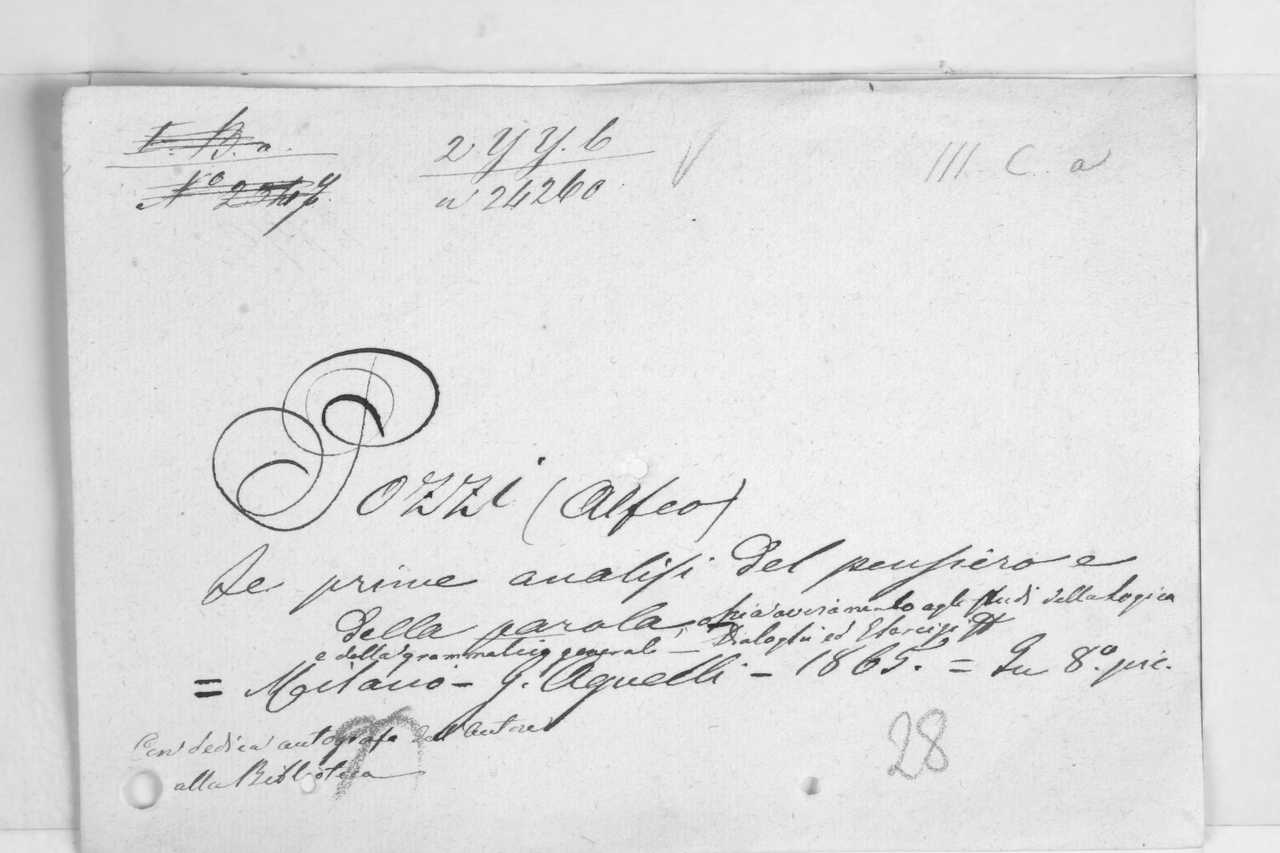 I. B. a. 2 Y Y. b III C. a
N.º 2247. a 24260
Pozzi (Alfeo)
Le prime analisi del pensiero e
della parola, ossia avviamento agli studi della Logica
e della grammatica generale - Dialoghi ed Esercizi
= Milano - G. Agnelli - 1865. = In 8.º pic.
Con dedica autografa dell'Autore
alla Biblioteca
28